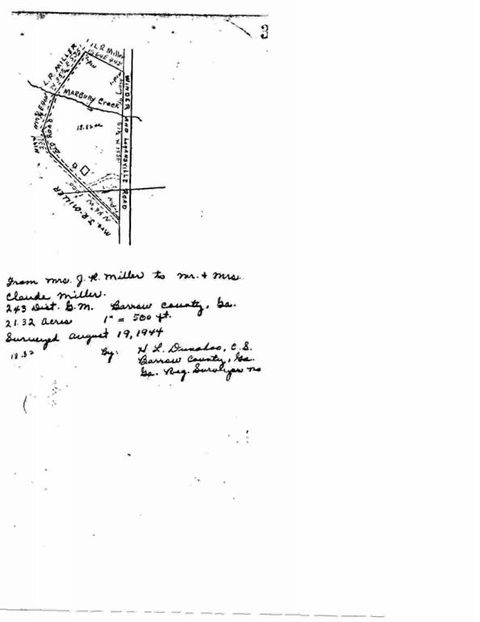 3
L.R. Miller
L.R. MILLER
MARBURY CREEK
WINDER AND LOGANSVILLE ROAD
OLD ROAD
18.82 ac
MRS. J.R. MILLER
From Mrs. J. R. Miller to Mr. & Mrs.
Claude Miller.
243 Dist. G.M. Barrow County, Ga.
21.32 acres 1" = 500 ft.
Surveyed August 19, 1944
18.82
By: H L. Dunahoo, C. S.
Barrow County, Ga.
Ga. Reg. Surveyor no